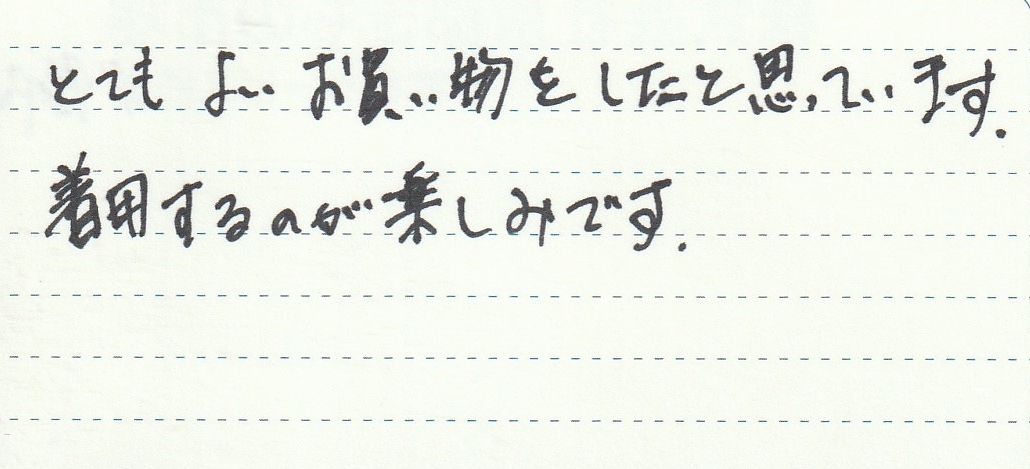 とても よい お買い物をしたと思っています.
着用するのが楽しみです.